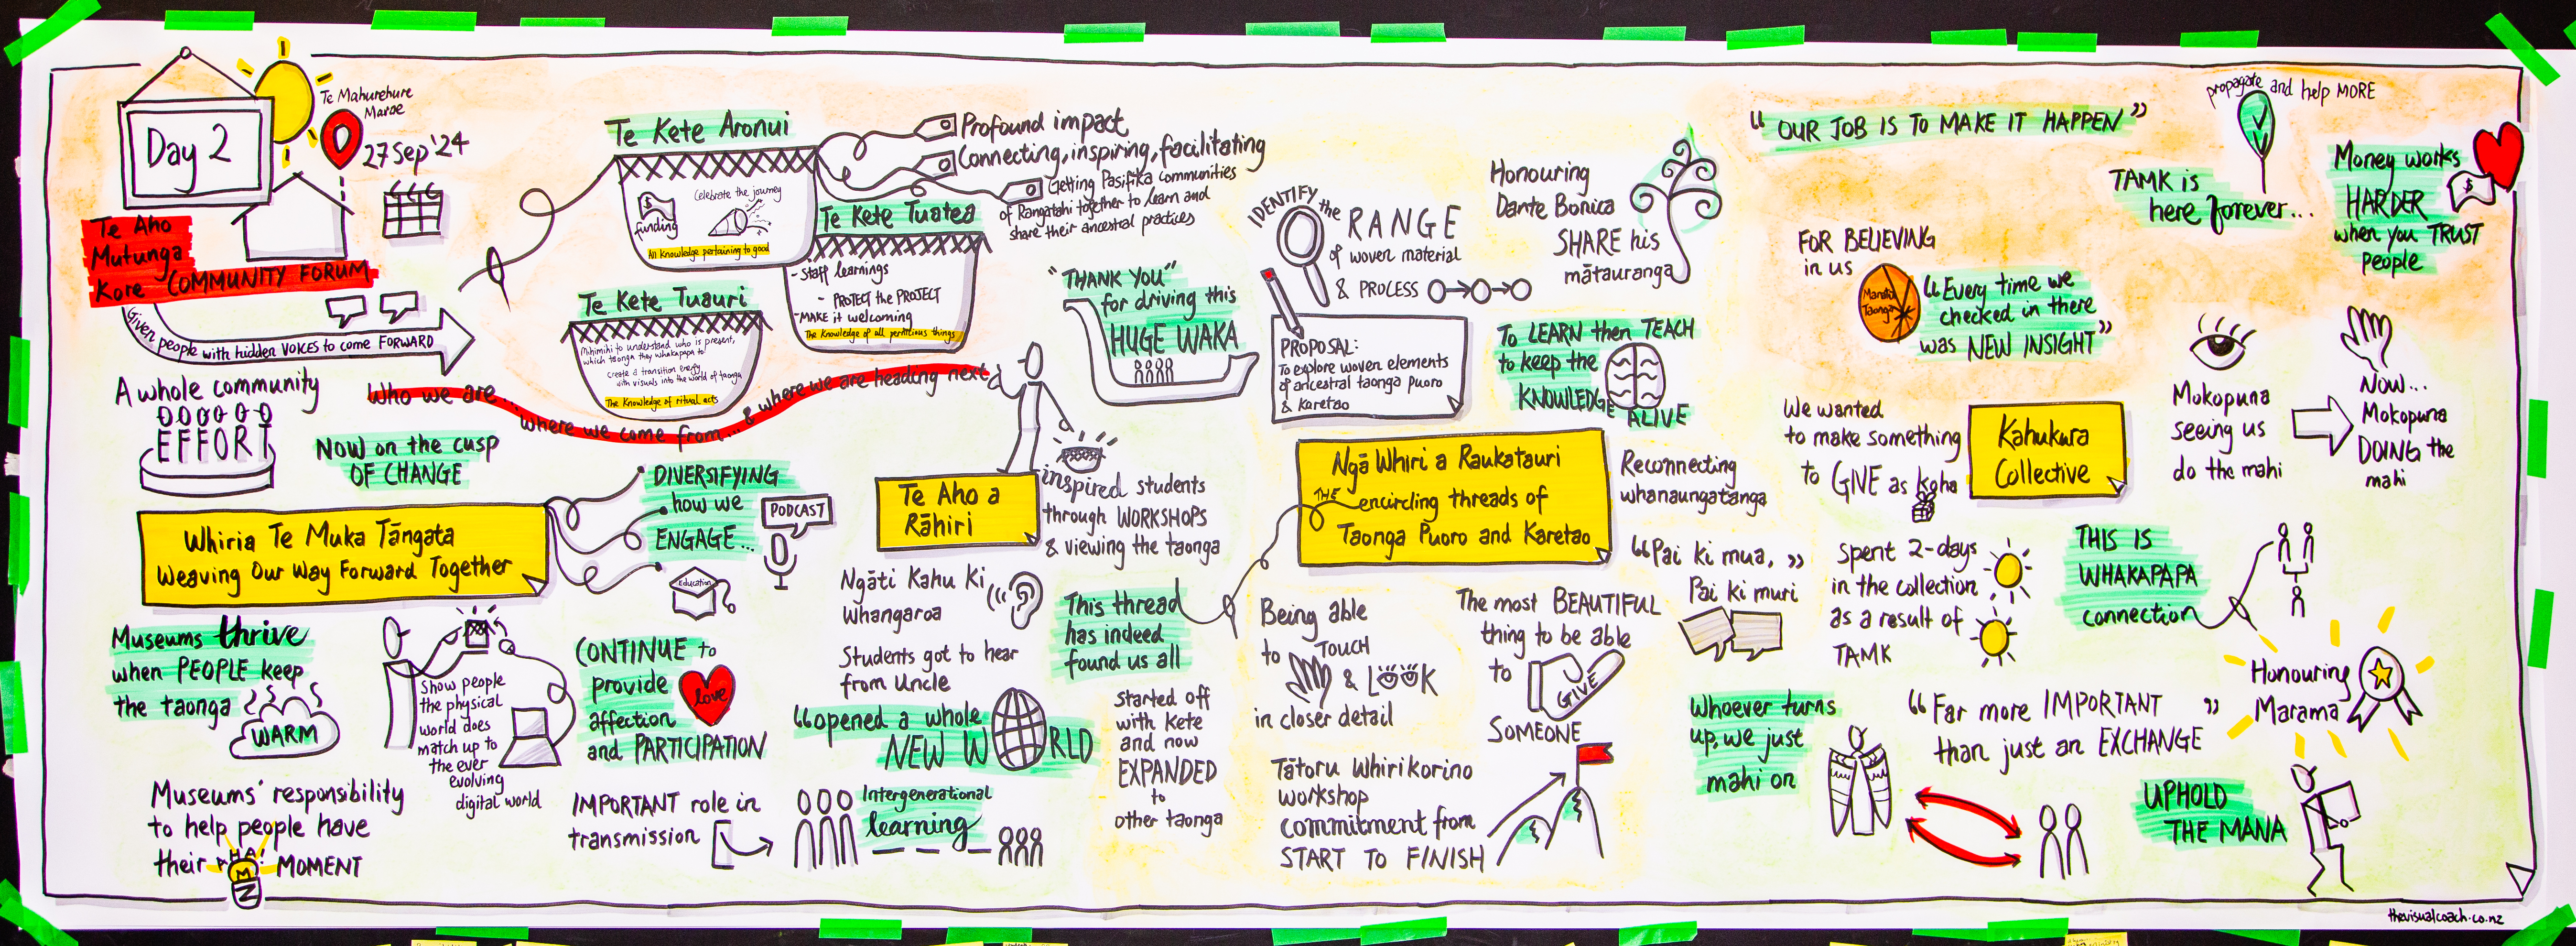 Day 2
Te Mahurehure
Marae
27 Sep '24
Te Aho
Mutunga
Kore COMMUNITY FORUM
Given people with hidden VOICES to come FORWARD
A whole community
EFFORT
Who we are... where we come from... & where we are heading next
NOW on the cusp
OF CHANGE
Whiria Te Muka Tāngata
Weaving Our Way Forward Together
DIVERSIFYING
how we
ENGAGE...
PODCAST
Education
Museums thrive
when PEOPLE keep
the taonga
WARM
Show people
the physical
world does
match up to
the ever
evolving
digital world
Museums' responsibility
to help people have
their AHA! MOMENT
CONTINUE to
provide
affection
and PARTICIPATION
love
IMPORTANT role in
transmission
Intergenerational
learning
Te Kete Aronui
funding
Celebrate the journey
All Knowledge pertaining to good
Profound impact
Connecting, inspiring, facilitating
Getting Pasifika communities
of Rangatahi together to learn and
share their ancestral practices
Te Kete Tuatea
- Staff learnings
- PROTECT the PROJECT
- MAKE it welcoming
The Knowledge of all pernicious things
Te Kete Tuauri
Mihimihi to understand who is present,
which taonga they whakapapa to
create a transition energy
with visuals into the world of taonga
The Knowledge of ritual acts
Te Aho a
Rāhiri
inspired students
through WORKSHOPS
& viewing the taonga
Ngāti Kahu Ki
Whangaroa
Students got to hear
from Uncle
"opened a whole
NEW WORLD
"THANK YOU"
for driving this
HUGE WAKA
This thread
has indeed
found us all
Started off
with Kete
and now
EXPANDED
to
other taonga
IDENTIFY the
RANGE
of woven material
& PROCESS
PROPOSAL:
To explore woven elements
of ancestral taonga puoro
& Karetao
Honouring
Dante Bonica
SHARE his
mātauranga
To LEARN then TEACH
to keep the
KNOWLEDGE
ALIVE
Ngā Whiri a Raukatauri
THE encircling threads of
Taonga Puoro and Karetao
Reconnecting
whanaungatanga
"Pai ki mua,"
Pai ki muri
Being able
to TOUCH
& LOOK
in closer detail
The most BEAUTIFUL
thing to be able
to GIVE
SOMEONE
Tātoru Whirikorino
workshop
commitment from
START TO FINISH
"OUR JOB IS TO MAKE IT HAPPEN"
propagate and help MORE
TAMK is
here forever...
Money works
HARDER
when you TRUST
people
$
FOR BELIEVING
in us
Manatū
Taonga
"Every time we
checked in there
was NEW INSIGHT"
We wanted
to make something
to GIVE as Koha
Kahukura
Collective
Mokopuna
seeing us
do the mahi
NOW...
Mokopuna
DOING the
mahi
Spent 2-days
in the collection
as a result of
TAMK
THIS IS
WHAKAPAPA
connection
Honouring
Marama
Whoever turns
up, we just
mahi on
"Far more IMPORTANT"
than just an EXCHANGE
UPHOLD
THE MANA
thevisualcoach.co.nz